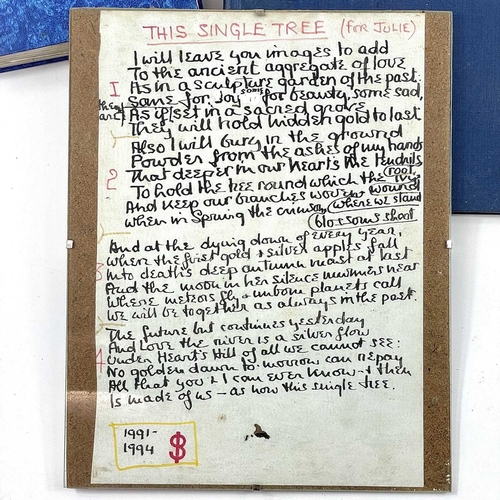 THIS SINGLE TREE (FOR JULIE)
I will leave you images to add
To the ancient aggregate of love
1 As in a sculpture garden of the past:
Some for joy some for beauty, some sad,
they are As if set in a sacred grove
They will hold hidden gold to last
Also I will bury in the ground
Powder from the ashes of my hands
2 That deeper in our hearts the tendrils root,
To hold the tree round which the ivy wound
And keep our branches woven where we stand
When in Spring the crimson blossoms shoot
And at the dying down of every year,
Where the first gold + silver apples fall
3 Into death's deep autumn mast at last
And the moon in her silence murmurs near
Where meteors fly + unborn planets call
We will be together as always in the past.
The future but continues yesterday
And Love the river is a silver flow
4 Under Heart's Hill of all we cannot see:
No golden dawn to-morrow can repay
All that you + I can ever know + then
Is made of us – as now this single tree.
1991-
1994 $